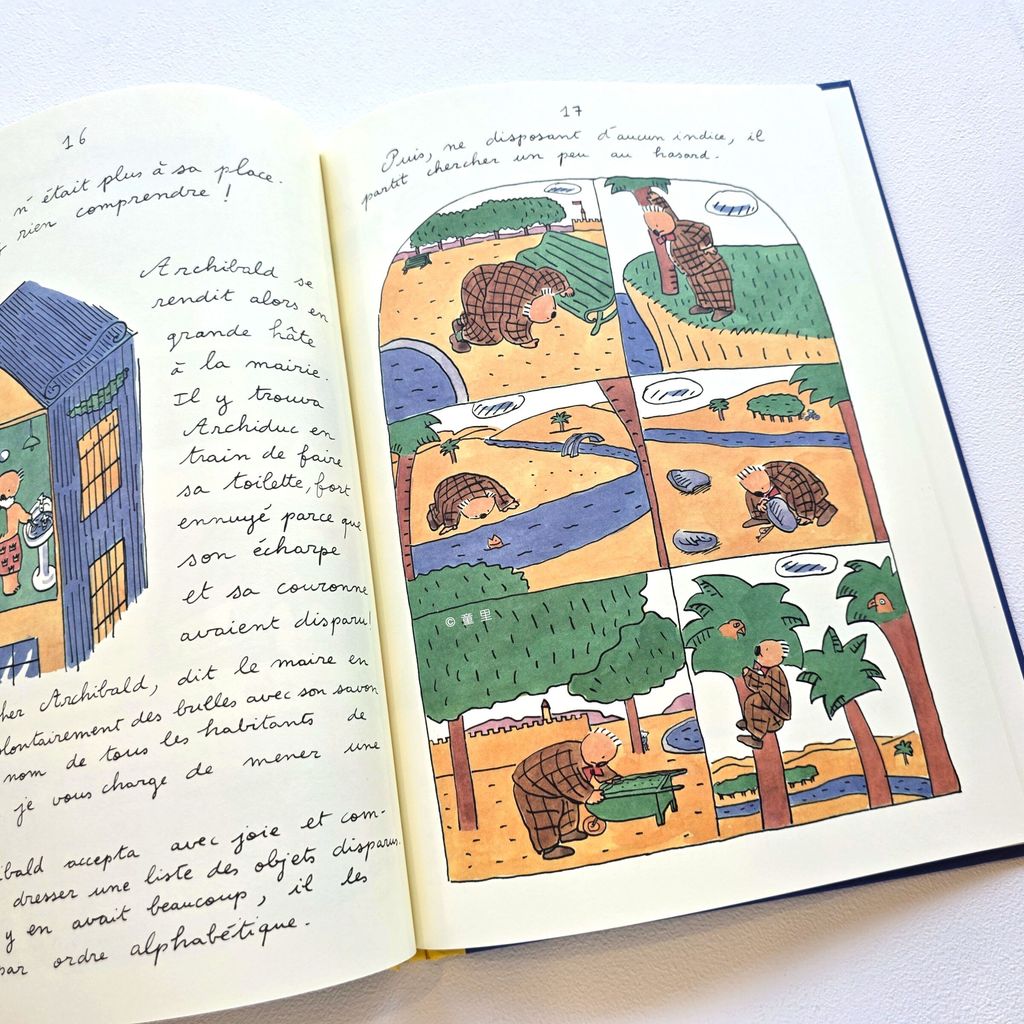 16
n'était plus à sa place.
rien comprendre !
Archibald se
rendit alors en
grande hâte
à la mairie.
Il y trouva
Archiduc en
train de faire
sa toilette, fort
ennuyé parce que
son écharpe
et sa couronne
avaient disparu!
her Archibald, dit le maire en
olontairement des bulles avec son savon
nom de tous les habitants de
je vous charge de mener une
ibald accepta avec joie et com-
dresser une liste des objets disparus.
y en avait beaucoup, il les
par ordre alphabétique.
17
Puis, ne disposant d'aucun indice, il
partit chercher un peu au hasard.
© 童里